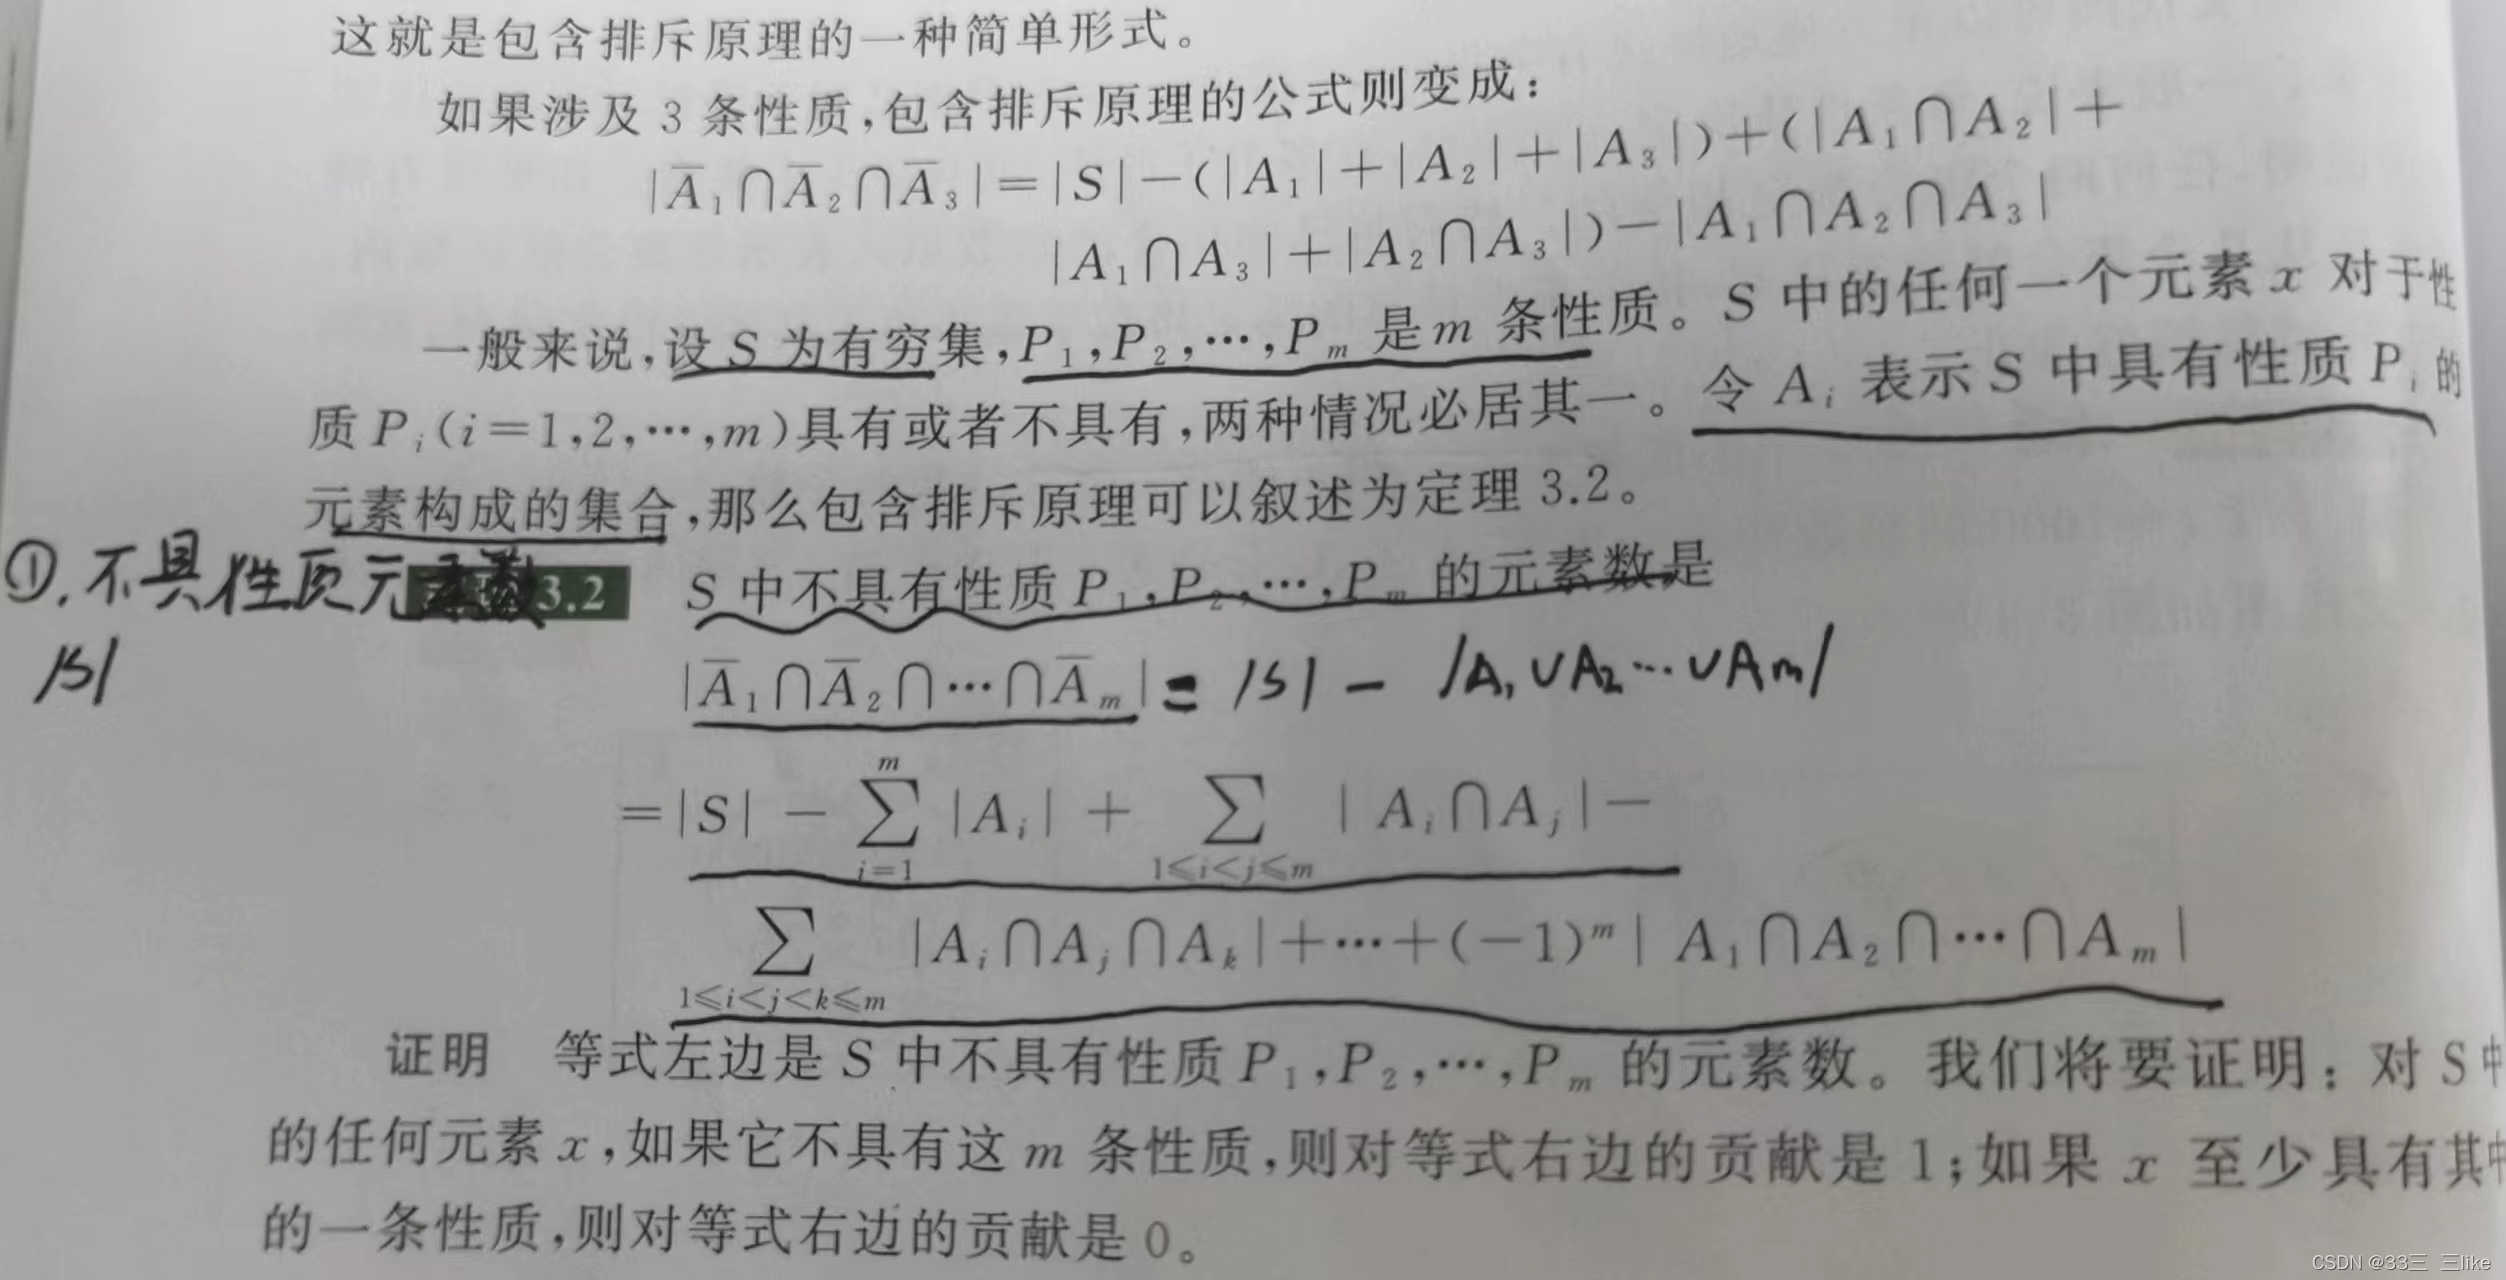 这就是包含排斥原理的一种简单形式。
如果涉及 3 条性质,包含排斥原理的公式则变成:
|A̅₁∩A̅₂∩A̅₃|=|S|−(|A₁|+|A₂|+|A₃|)+(|A₁∩A₂|+
|A₁∩A₃|+|A₂∩A₃|)−|A₁∩A₂∩A₃|
一般来说,设 S 为有穷集,P₁,P₂,⋯,Pₘ 是 m 条性质。S 中的任何一个元素 x 对于性
质 Pᵢ(i=1,2,⋯,m)具有或者不具有,两种情况必居其一。令 Aᵢ 表示 S 中具有性质 Pᵢ 的
元素构成的集合,那么包含排斥原理可以叙述为定理 3.2。
①.不具性质元素数
3.2 S 中不具有性质 P₁,P₂,⋯,Pₘ 的元素数是
|S|
|A̅₁∩A̅₂∩⋯∩A̅ₘ| = |S| − |A₁∪A₂⋯∪Aₘ|
=|S| − ∑ᵢ₌₁ᵐ |Aᵢ| + ∑1≤i<j≤m |Aᵢ∩Aⱼ|−
∑1≤i<j<k≤m |Aᵢ∩Aⱼ∩Aₖ|+⋯+(−1)ᵐ|A₁∩A₂∩⋯∩Aₘ|
证明 等式左边是 S 中不具有性质 P₁,P₂,⋯,Pₘ 的元素数。我们将要证明:对 S 中
的任何元素 x,如果它不具有这 m 条性质,则对等式右边的贡献是 1;如果 x 至少具有其中
的一条性质,则对等式右边的贡献是 0。
CSDN @33三 三like